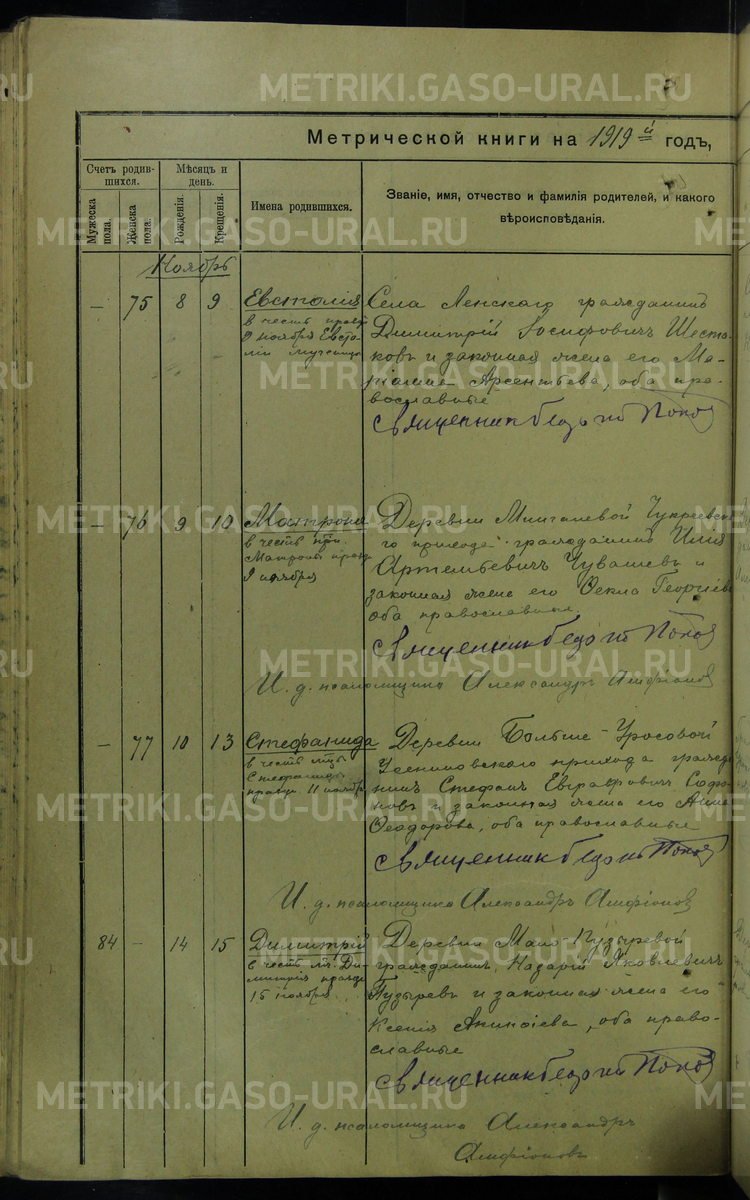 Метрической книги на 1919й годъ,
Счетъ родившихся.
Мѣсяцъ и день.
Мужеска пола.
Женска пола.
Рожденія.
Крещенія.
Имена родившихся.
Званіе, имя, отчество и фамилія родителей, и какого
вѣроисповѣданія.
Ноябрь
— 75 8 9 Евстолія
в честь празд.
9 ноября Евсто-
ліи мученицы
Села Ленскаго гражданинъ
Димитрій Іосифовичъ Шеста-
ковъ и законная жена его Ма-
ріамна Арсентьева, оба пра-
вославные
Священникъ Георгій Попов
— 76 9 10 Матрона
в честь прп.
Матроны празд.
9 ноября
Деревни Мингалевой Чукреевска-
го прихода гражданинъ Илія
Артемьевичъ Чувашевъ и
законная жена его Ѳекла Георгіева
оба православные.
Священникъ Георгій Попов
И. д. псаломщика Александръ Амфіоновъ
— 77 10 13 Стефанида
в честь мцы
Стефаниды
празд. 11 ноября
Деревни Больше-Уросовой
Усениновскаго прихода гражда-
нинъ Стефанъ Евграфовичъ Софо-
новъ и законная жена его Анна
Ѳеодорова, оба православные
Священникъ Георгій Попов
И. д. псаломщика Александръ Амфіоновъ
84 — 14 15 Димитрій
в честь мч. Ди-
митрія празд.
15 ноября
Деревни Мало-Пузыревой
гражданинъ Назарій Яковлевичъ
Пузыревъ и законная жена его
Ксенія, оба право-
славные
Священникъ Георгій Попов
И. д. псаломщика Александръ
Амфіоновъ
METRIKI.GASO-URAL.RU